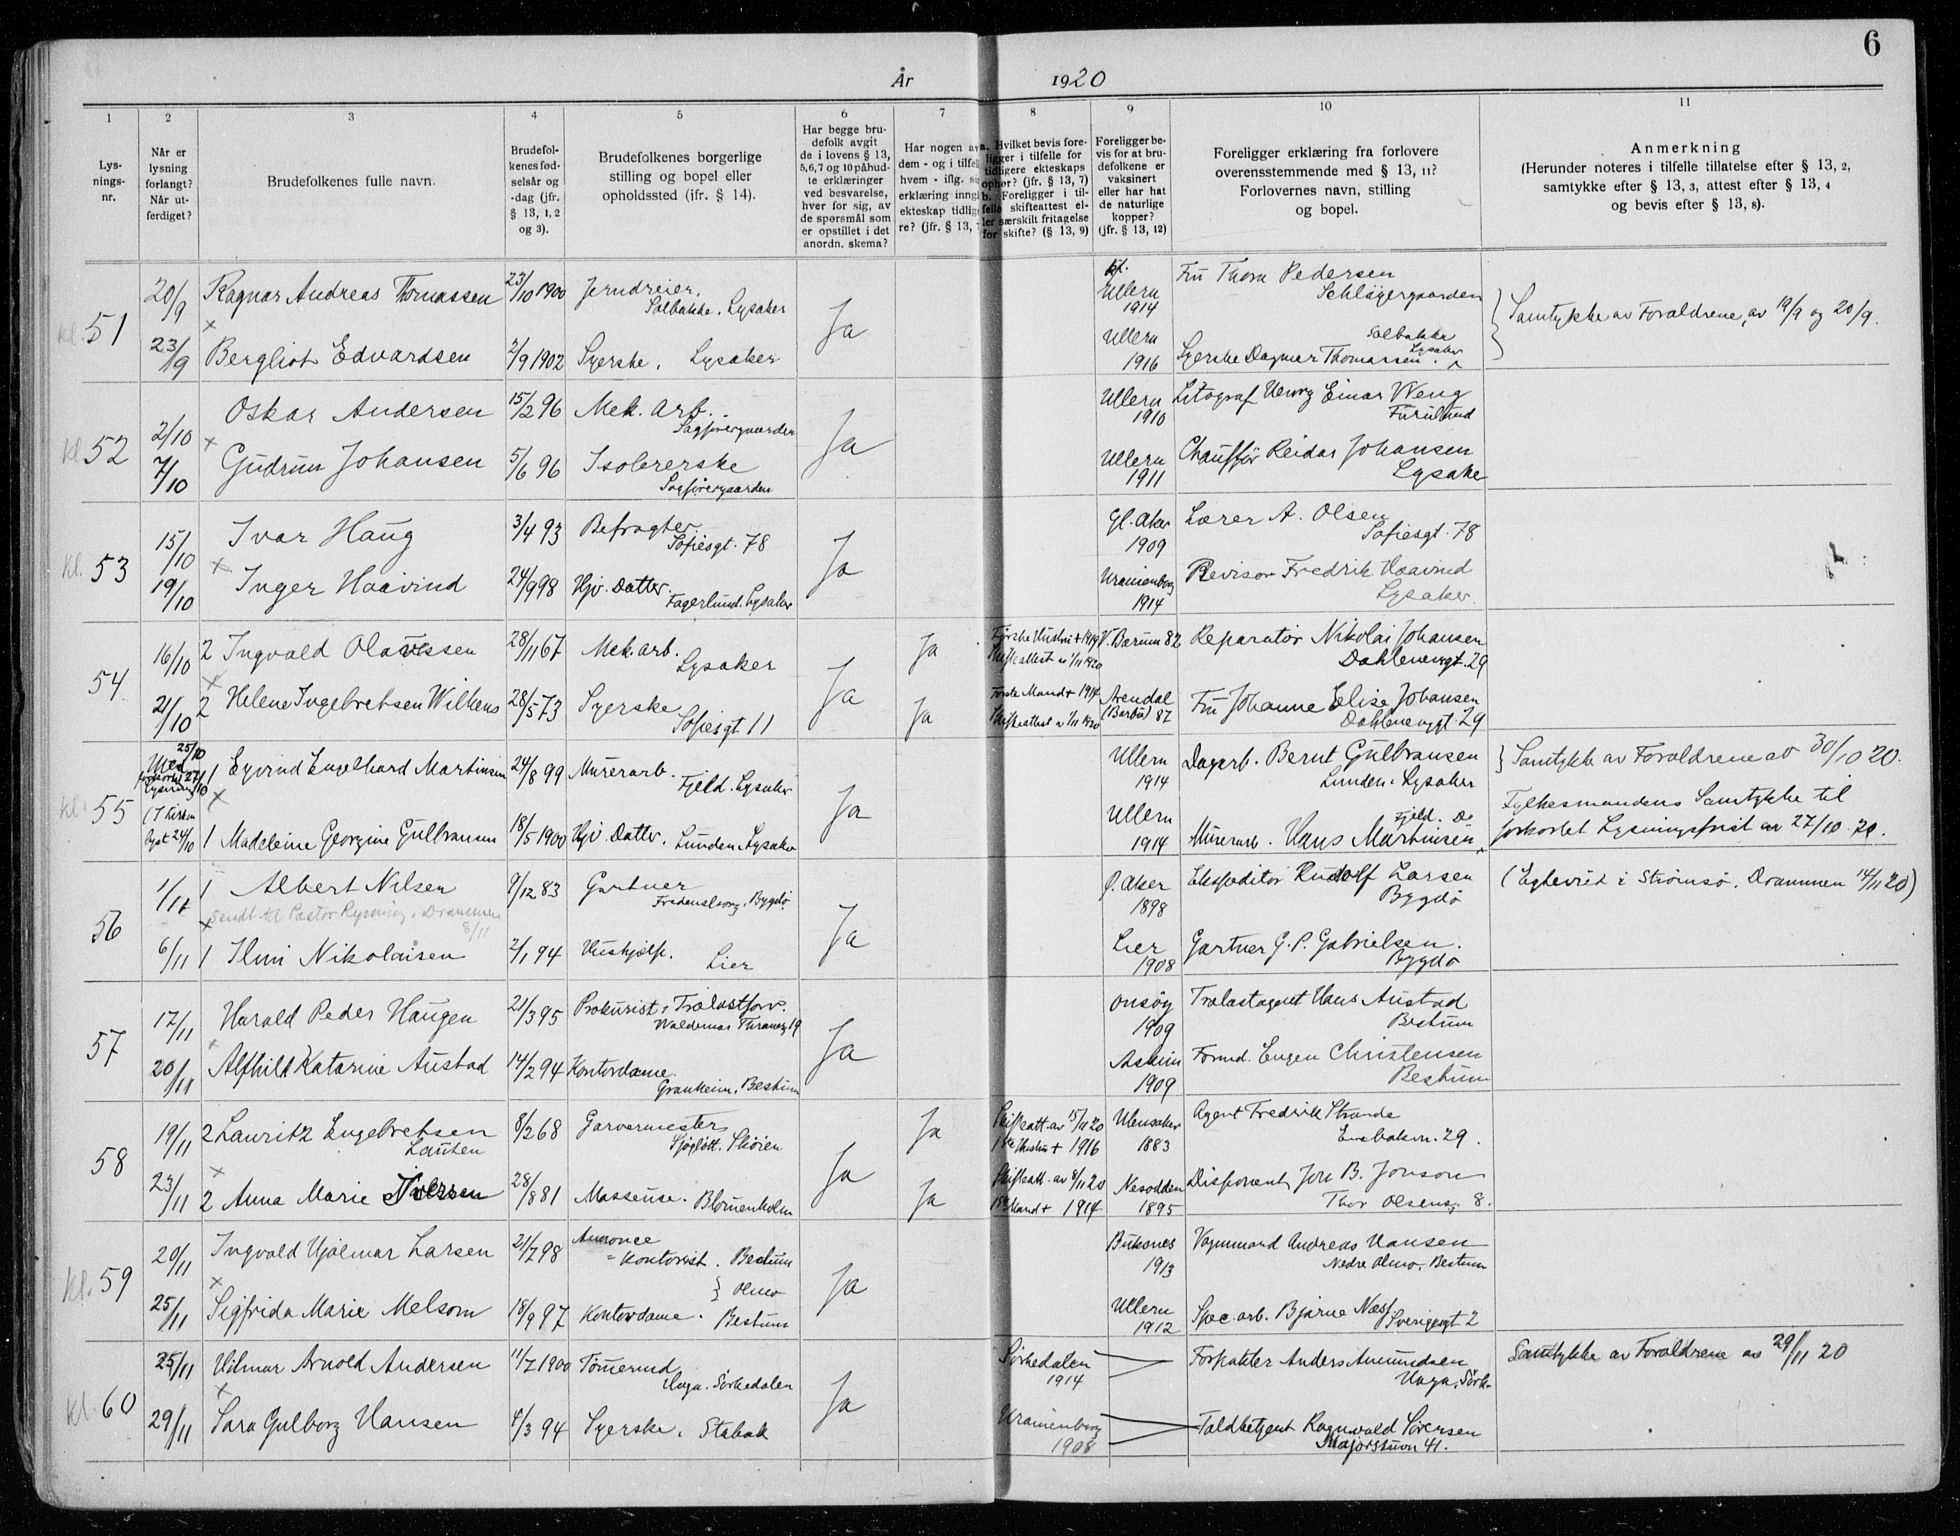 6
År 1920
1 2 3 4 5 6 7 8 9 10 11
Lys-
nings-
nr.
Når er
lysning
forlangt?
Når ut-
ferdiget?
Brudefolkenes fulle navn.
Brudefol-
kenes fød-
selsår og
-dag (jfr.
§ 13, 1, 2
og 3).
Brudefolkenes borgerlige
stilling og bopel eller
opholdssted (ifr. § 14).
Har begge bru-
defolk avgit
de i lovens § 13,
5, 6, 7 og 10 påbud-
te erklæringer
ved besvarelse,
hver for sig, av
de spørsmål som
er opstillet i det
anordn. skema?
Har nogen av
dem - og i tilfel
hvem - iflg. si
erklæring inngå
ekteskap tidlige
re? (jfr. § 13,
a. Hvilket bevis fore-
ligger i tilfelle for
tidligere ekteskaps
ophør? (jfr. § 13, 7)
b. Foreligger i til-
felle skifteattest el-
ler særskilt fritagelse
for skifte? (§ 13, 9)
Foreligger be-
vis for at bru-
defolkene er
vaksinert
eller har hat
de naturlige
kopper?
(jfr. § 13, 12)
Foreligger erklæring fra forlovere
overensstemmende med § 13, 11?
Forlovernes navn, stilling
og bopel.
Anmerkning
(Herunder noteres i tilfelle tillatelse efter § 13, 2,
samtykke efter § 13, 3, attest efter § 13, 4
og bevis efter § 13, 8).
kl. 51
20/9 Ragnar Andreas Thomassen 23/10 1900 Jerndreier, Ullern Fru Thora Pedersen
Solbakke. Lysaker 1914 Schlägergaarden
Ja Samtykke av Forældrene, av 19/9 og 20/9.
23/9 Bergliot Edvardsen 2/9 1902 Syerske, Lysaker Ullern Solbakke Lysaker
1916 Syerske Dagmar Thomassen.
kl. 52
2/10 Oskar Andersen 15/2 96 Mek. Arb. Ullern Litograf Georg Einar Weng
1910 Furulund
Ja
7/10 Gudrun Johansen 5/6 96 Isolererske Ullern Chauffør Reidar Johansen
1911 Lysaker
kl. 53
15/10 Ivar Haug 3/4 93 Befragter Gl. Aker Lærer A. Olsen
Sofiesgt. 78 1909 Sofiesgt. 78
Ja
19/10 Inger Haavind 24/9 98 Hjv. Datter. Uranienborg Revisor Fredrik Haavind
Fagerlund. Lysaker 1914 Lysaker
54
16/10 2 Ingvald Olavessen 28/11 67 Mek. arb. Ja Første Hustru + 1919 V. Bærum 82 Reparatør Nikolai Johansen
Lysaker Skifteattest av 1/11 1920 Dahlenenggt. 29
Ja
21/10 2 Helene Ingebretsen Wilkens 28/5 73 Syerske Ja Første Mand + 1914 Arendal Fru Johanne Elise Johansen
Sofiesgt 11 Skifteattest av 1/11 1920 (Barbu) 87 Dahlenenggt. 29
kl. 55
25/10 Med forkortet 27/10 Lysning
1 Eyvind Engelhard Martinsen 24/8 99 Murerarb. Ullern Dagarb. Bernt Gulbransen Samtykke av Forældrene av 30/10 20.
Fjeld. Lysaker 1914 Lunden, Lysaker
Ja Fylkesmandens Samtykke til
(I Kirken lyst 24/10 1 Madeleine Georgine Gulbransen 18/5 1900 Hjv. Datter. Lunden, Lysaker Ullern Fjeld. Do
1914 Murerarb. Hans Martinsen forkortet Lysningsfrist av 27/10 20.
56
1/11 1 Albert Nilsen 9/12 83 Gartner Ø. Aker Ekspeditør Rudolf Larsen (Egteviet i Strømsø, Drammen 14/11 20)
Fredensborg, Bygdø. 1898 Bygdø
Sendt til Pastor Rysning, Drammen 8/11
Ja
6/11 1 Ilmi Nikolaisen 2/1 94 Hushjælp. Lier Gartner G. P. Gabrielsen.
Lier 1908 Bygdø
57
17/11 Harald Peder Haugen 21/3 95 Prokurist i Trælastforr. Onsøy Trælastagent Hans Austad
Waldemar Thranesg 19 1909 Bestum
Ja
20/11 Alfhild Katarine Austad 14/2 94 Kontordame. Askim Formd. Eugen Christensen
Granheim. Bestum 1909 Bestum
58
19/11 2 Lauritz Engebretsen 8/2 68 Garvermester Ja Skifteatt. av 15/11 20 Ullensaker Agent Fredrik Strande
Lauten Sjøgløtt. Skøien 1ste Hustru + 1916 1883
Ja
23/11 2 Anna Marie Iversen 28/8 81 Massøse. Blommenholm Ja Skifteatt. av 8/11 20 Nesodden Disponent Jon B. Jonson
1ste Mand + 1914 1895 Thor Olsensg. 8.
kl. 59
20/11 Ingvald Hjalmar Larsen 21/7 98 Annonce Buksnes Vognmand Andreas Hansen
= Kontorist. Bestum 1913 Nedre Olmo, Bestum
} Olmo Ja
25/11 Sigfrida Marie Melsom 18/9 97 Kontordame. Bestum Ullern Spec. arb. Bjarne Næss
1912 Sverigesgt 2
kl. 60
25/11 Hilmar Arnold Andersen 11/7 1900 Tømermd Sørkedalen Forpakter Anders Amundsen Samtykke av Forældrene av 29/11 20
Haga. Sørkedalen 1914 Haga, Sørk-
Ja
29/11 Sara Gulborg Hansen 4/3 94 Syerske, Stabæk Uranienborg Toldbetjent Ragnvald Sørensen
1908 Majorstuvn 41.